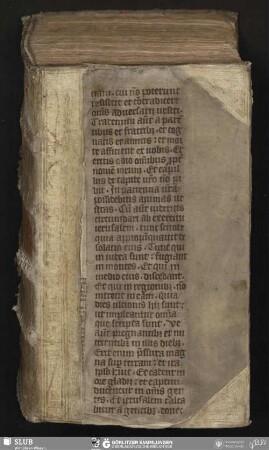 tiam: cui nõ poterunt
resistere et cõtradicere
om̃s adversarij vestri.
Trademini aũt a paren
tibus et fratrib9 et cog
natis et amicis: et mor
te afficient ex vobis. Et
eritis odio om̃ibus ꝓpt
nomẽ meum. Et capil
lus de capite vr̃o nõ pe
bit. In pacientia vr̃a
possidebitis animas ve
stras. Cũ aũt videritis
circumdari ab exercitu
ierusalem: tunc scitote
quia appropinquavit de
solatio eius. Tunc qui
in iudea sunt: fugiant
in montes. Et qui in
medio eius: discedant.
Et qui in regionib9: nõ
intrent in eam. quia
dies ultionis hij sunt:
ut impleantur om̃ia
que scripta sunt. Ve
aũt pregnantib9 et nu
trientib9 in illis dieb9.
Erit enim p̃ssura mag
na sup terram: et ira
pplo huic. Et cadent in
ore gladij: et captivi
ducentur in om̃s gen
tes. Et ierusalem calca
bitur a gentib9: donec
SLUB
Wir führen Wissen.
GÖRLITZER SAMMLUNGEN